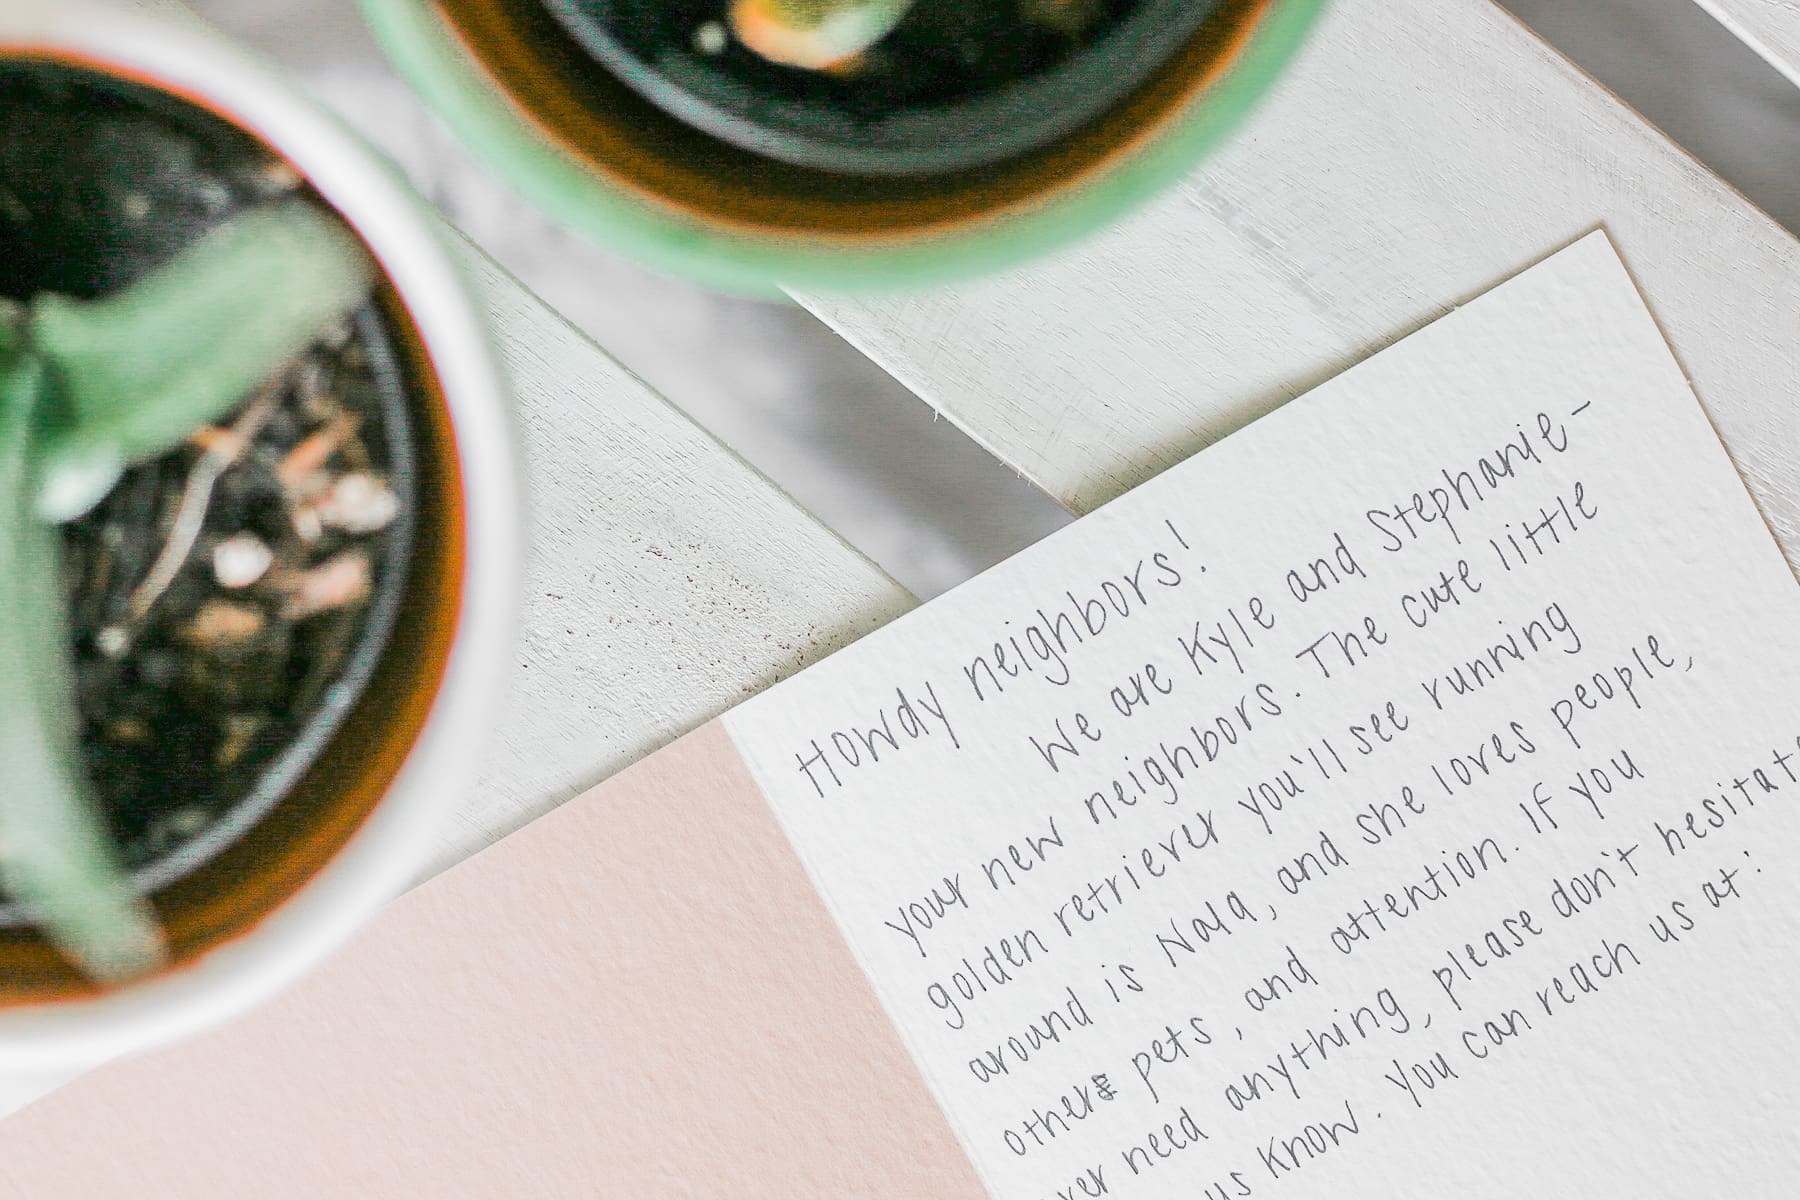 Howdy neighbors!
We are Kyle and Stephanie-
your new neighbors. The cute little
golden retriever you'll see running
around is Nala, and she loves people,
other pets, and attention. If you
ever need anything, please don't hesitate
us know. You can reach us at: